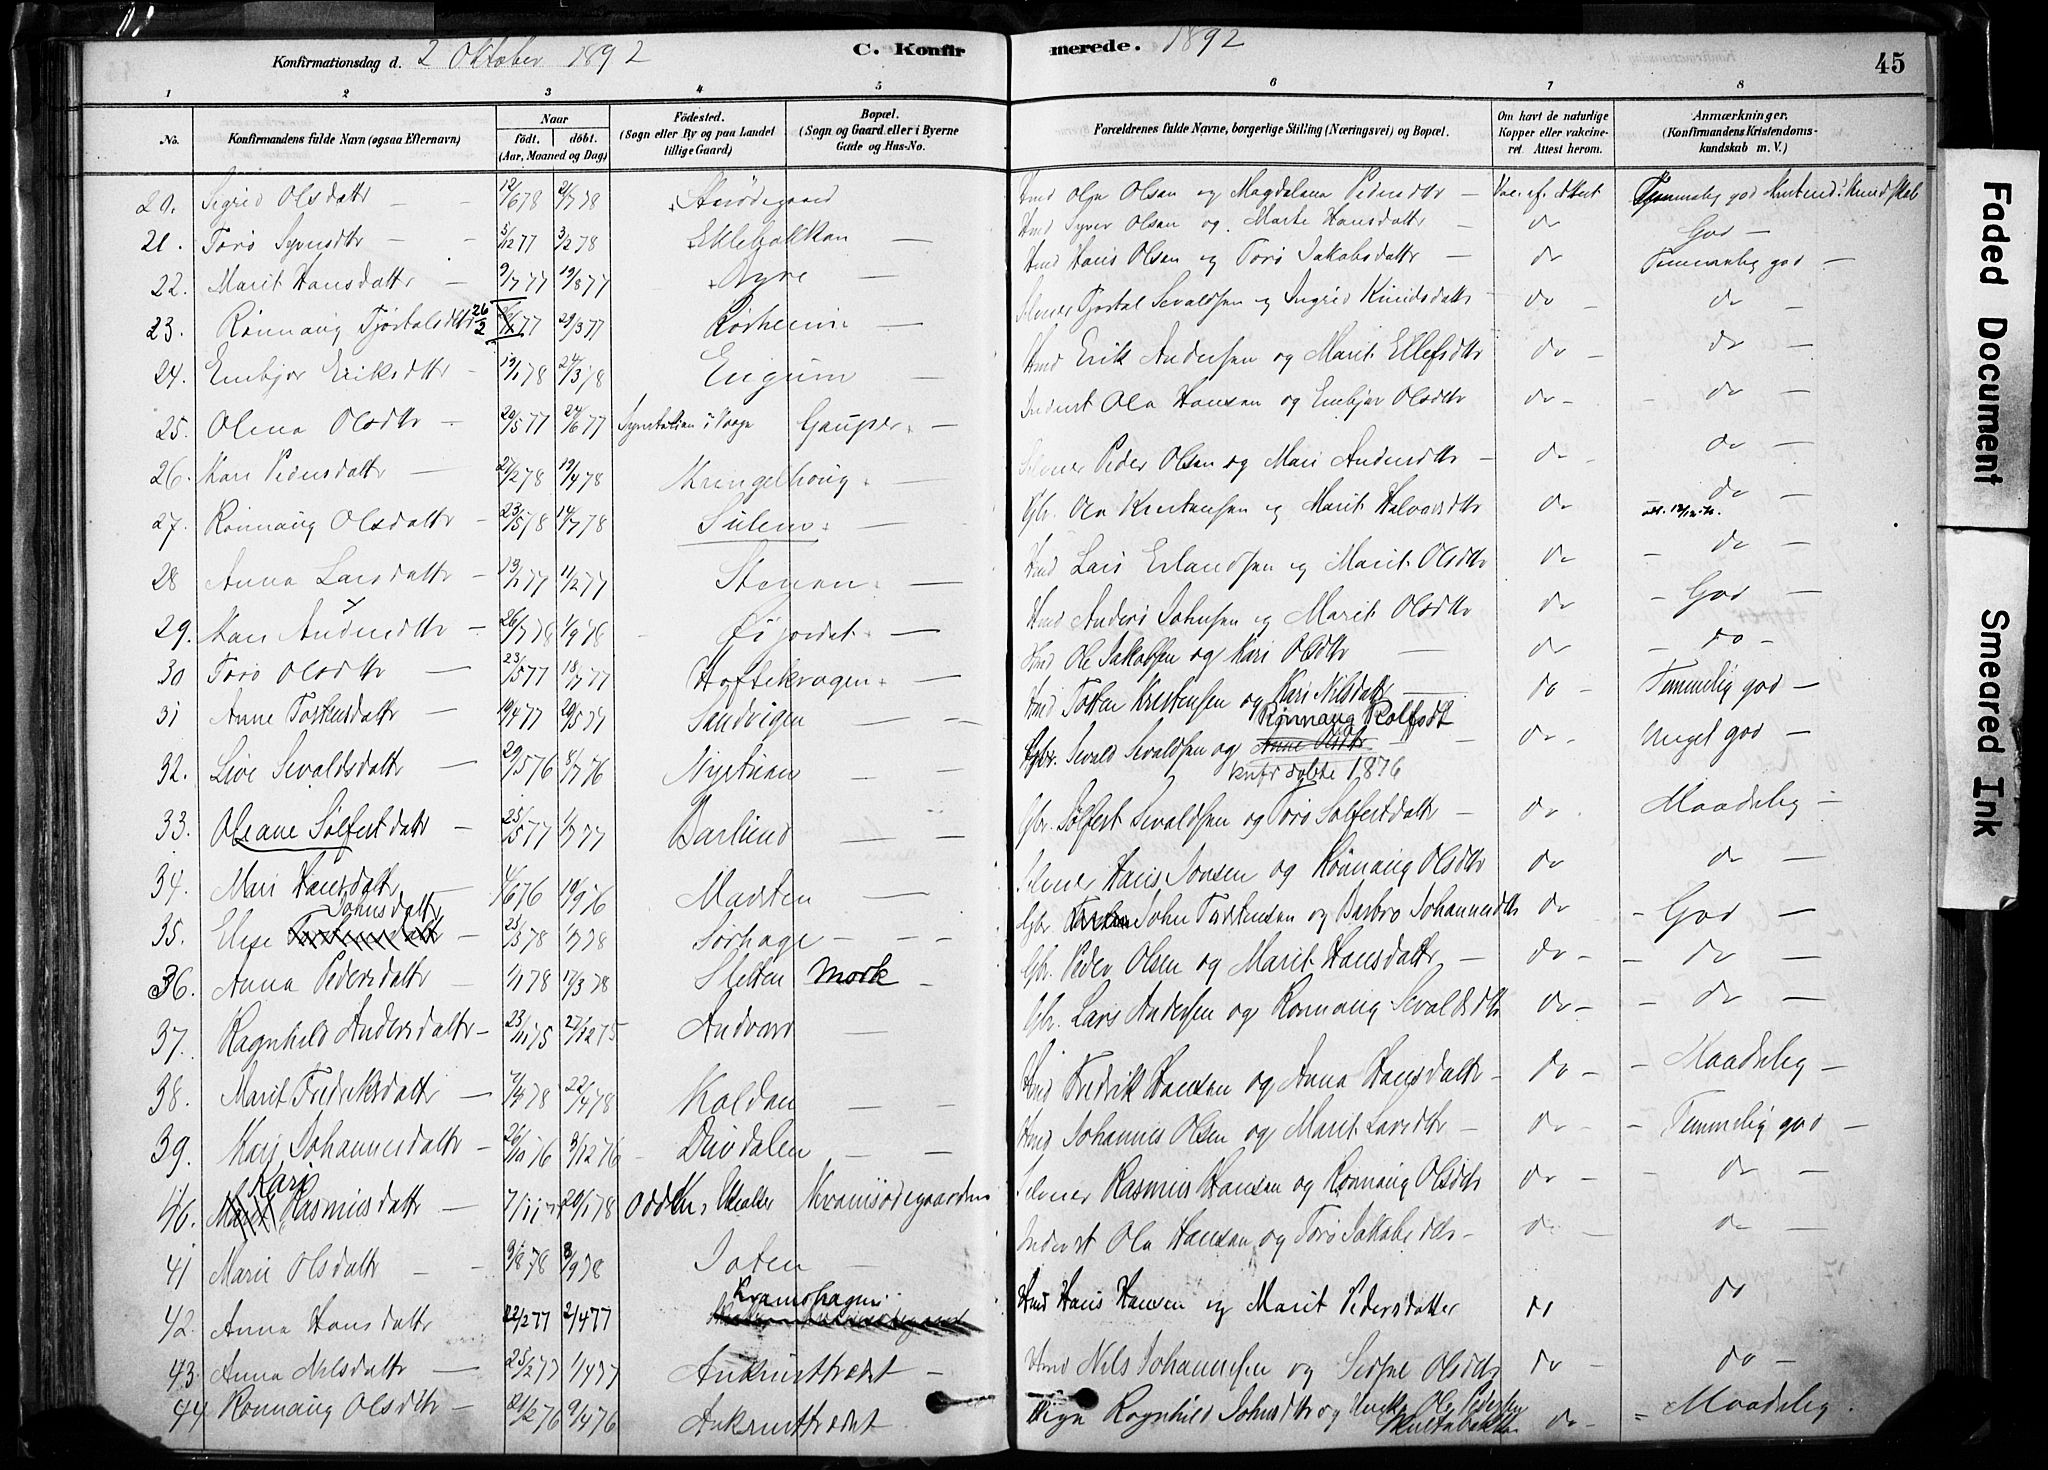 Konfirmationsdag d. 2 Oktober 1892
C. Konfirmerede. 1892
45
1 2 3 4 5 6 7 8
No. Konfirmandens fulde Navn (ogsaa Efternavn) Naar født. døbt. (Aar, Maaned og Dag) Fødested. (Sogn eller By og paa Landet tillige Gaard) Bopæl. (Sogn og Gaard eller i Byerne Gade og Hus-No. Forældrenes fulde Navne, borgerlige Stilling (Næringsvei) og Bopæl. Om havt de naturlige Kopper eller vakcineret. Attest herom. Anmærkninger. (Konfirmandens Kristendomskundskab m. V.)
20. Sigrid Olsdatr 12/6 78 21/7 78 Hmd Ola Olsen og Magdalena Pedersdtr Vac. ef. Attest Temmelig god Kristend. Kundskab
21. Torø Syversdtr 5/12 77 3/2 78 Eklebakkan Hmd Syver Olsen og Marte Hansdatr do God
22. Marit Hansdatr 9/7 77 19/8 77 Hmd Hans Olsen og Torø Jakobsdatr do Temmelig god
23. Rønnaug Tjøstolsdtr 26/2 77 29/3 77 Rosheim Selveier Tjostol Sevaldsen og Ingrid Knudsdatr do do
24. Embjør Eriksdtr 19/1 78 24/3 78 Eigum Hmd Erik Andersen og Marit Ellefsdtr do do
25. Olena Olsdtr 20/5 77 24/6 77 i Vaage Gauper Inderst Ola Hansen og Embjør Olsdtr do do
26. Kari Pedersdatr 27/2 78 19/4 78 Kringelhoug Selveier Peder Olsen og Mari Andersdtr do do
27. Rønnaug Olsdatr 23/5 78 14/7 78 Sulem Gbr. Ola Kristensen og Marit Halvorsdtr do do
28 Anna Larsdatr 13/1 77 11/2 77 Stenen Hmd Lars Erlandsen og Marit Olsdtr do do
29. Kari Andersdtr 26/7 78 1/9 78 Øijordet Hmd Anders Johnsen og Marit Olsdtr do God
30 Torø Olsdtr 23/5 77 18/7 77 Høftekragen Hmd Ole Jakobsen og Kari Olsdtr do do
31 Anne Tostensdatr 19/4 77 20/5 77 Sandvigen Hmd Tosten Kristensen og Kari Nilsdatr do Temmelig god
32. Live Sevaldsdatr 29/5 76 8/7 76 Nystuen Gbr. Sevald Sevaldsen og Anne Olsdtr Rønnaug Rolfsdt do Meget god
knfr døbte 1876
33. Oleane Solfestdatr 25/5 77 1/7 77 Barlund Gbr. Solfest Sevaldsen og Torø Solfestdatr do Maadelig
34. Mari Hansdatr 4/6 76 19/9 76 Marsten Selveier Hans Jonsen og Rønnaug Olsdtr do do
35. Elise Johnsdatr 25/5 78 1/7 78 Sørhage Gbr. John Tostensen og Barbro Johannesdtr do God
36. Anna Pedersdatr 1/1 78 17/3 78 Sletten Mork Gbr. Peder Olsen og Marit Hansdatr do do
37. Ragnhild Andersdatr 23/11 75 27/12 75 Andvord Gbr. Lars Andersen og Rønnaug Sevaldsdtr do do
38. Marit Fredriksdatr 7/4 78 22/4 78 Koldan Hmd Fredrik Hansen og Anna Hansdatr do Maadelig
39. Kari Johannesdatr 26/10 76 3/12 76 Duvdalen Hmd Johannes Olsen og Marit Larsdtr do Temmelig god
40. Kari Rasmusdatr 20/1 78 Kramsødegaarden Selveier Rasmus Hansen og Rønnaug Olsdtr do do
41 Marie Olsdatr 9/8 78 8/9 78 Joten Inderst Ola Hansen og Torø Jakobsdtr do do
42. Anna Hansdatr 22/2 77 2/4 77 Kramshagen Hmd Hans Hansen og Marit Pedersdatter do do
43. Anna Nilsdatr 25/2 77 1/4 77 Ankrusttrædet Hmd Nils Johannesen og Sidsel Olsdtr do do
44 Rønnaug Olsdtr 21/2 76 9/4 76 Ankrusttrædet Pige Ragnhild Johnsdtr og Ungk. Ole Pedersen do Maadelig.
Faded Document
Smeared Ink